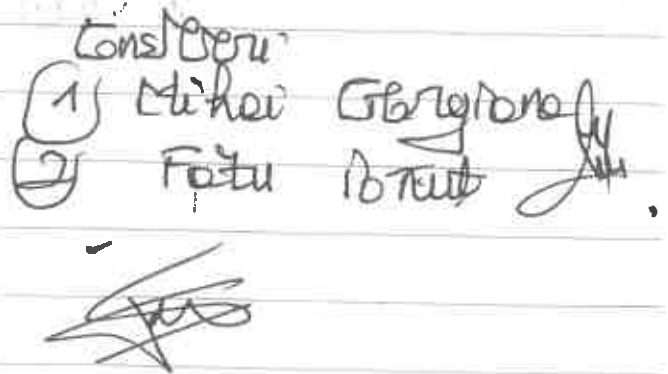 Consilieri
1 Mihai Georgiana
2 Fatu Ionut